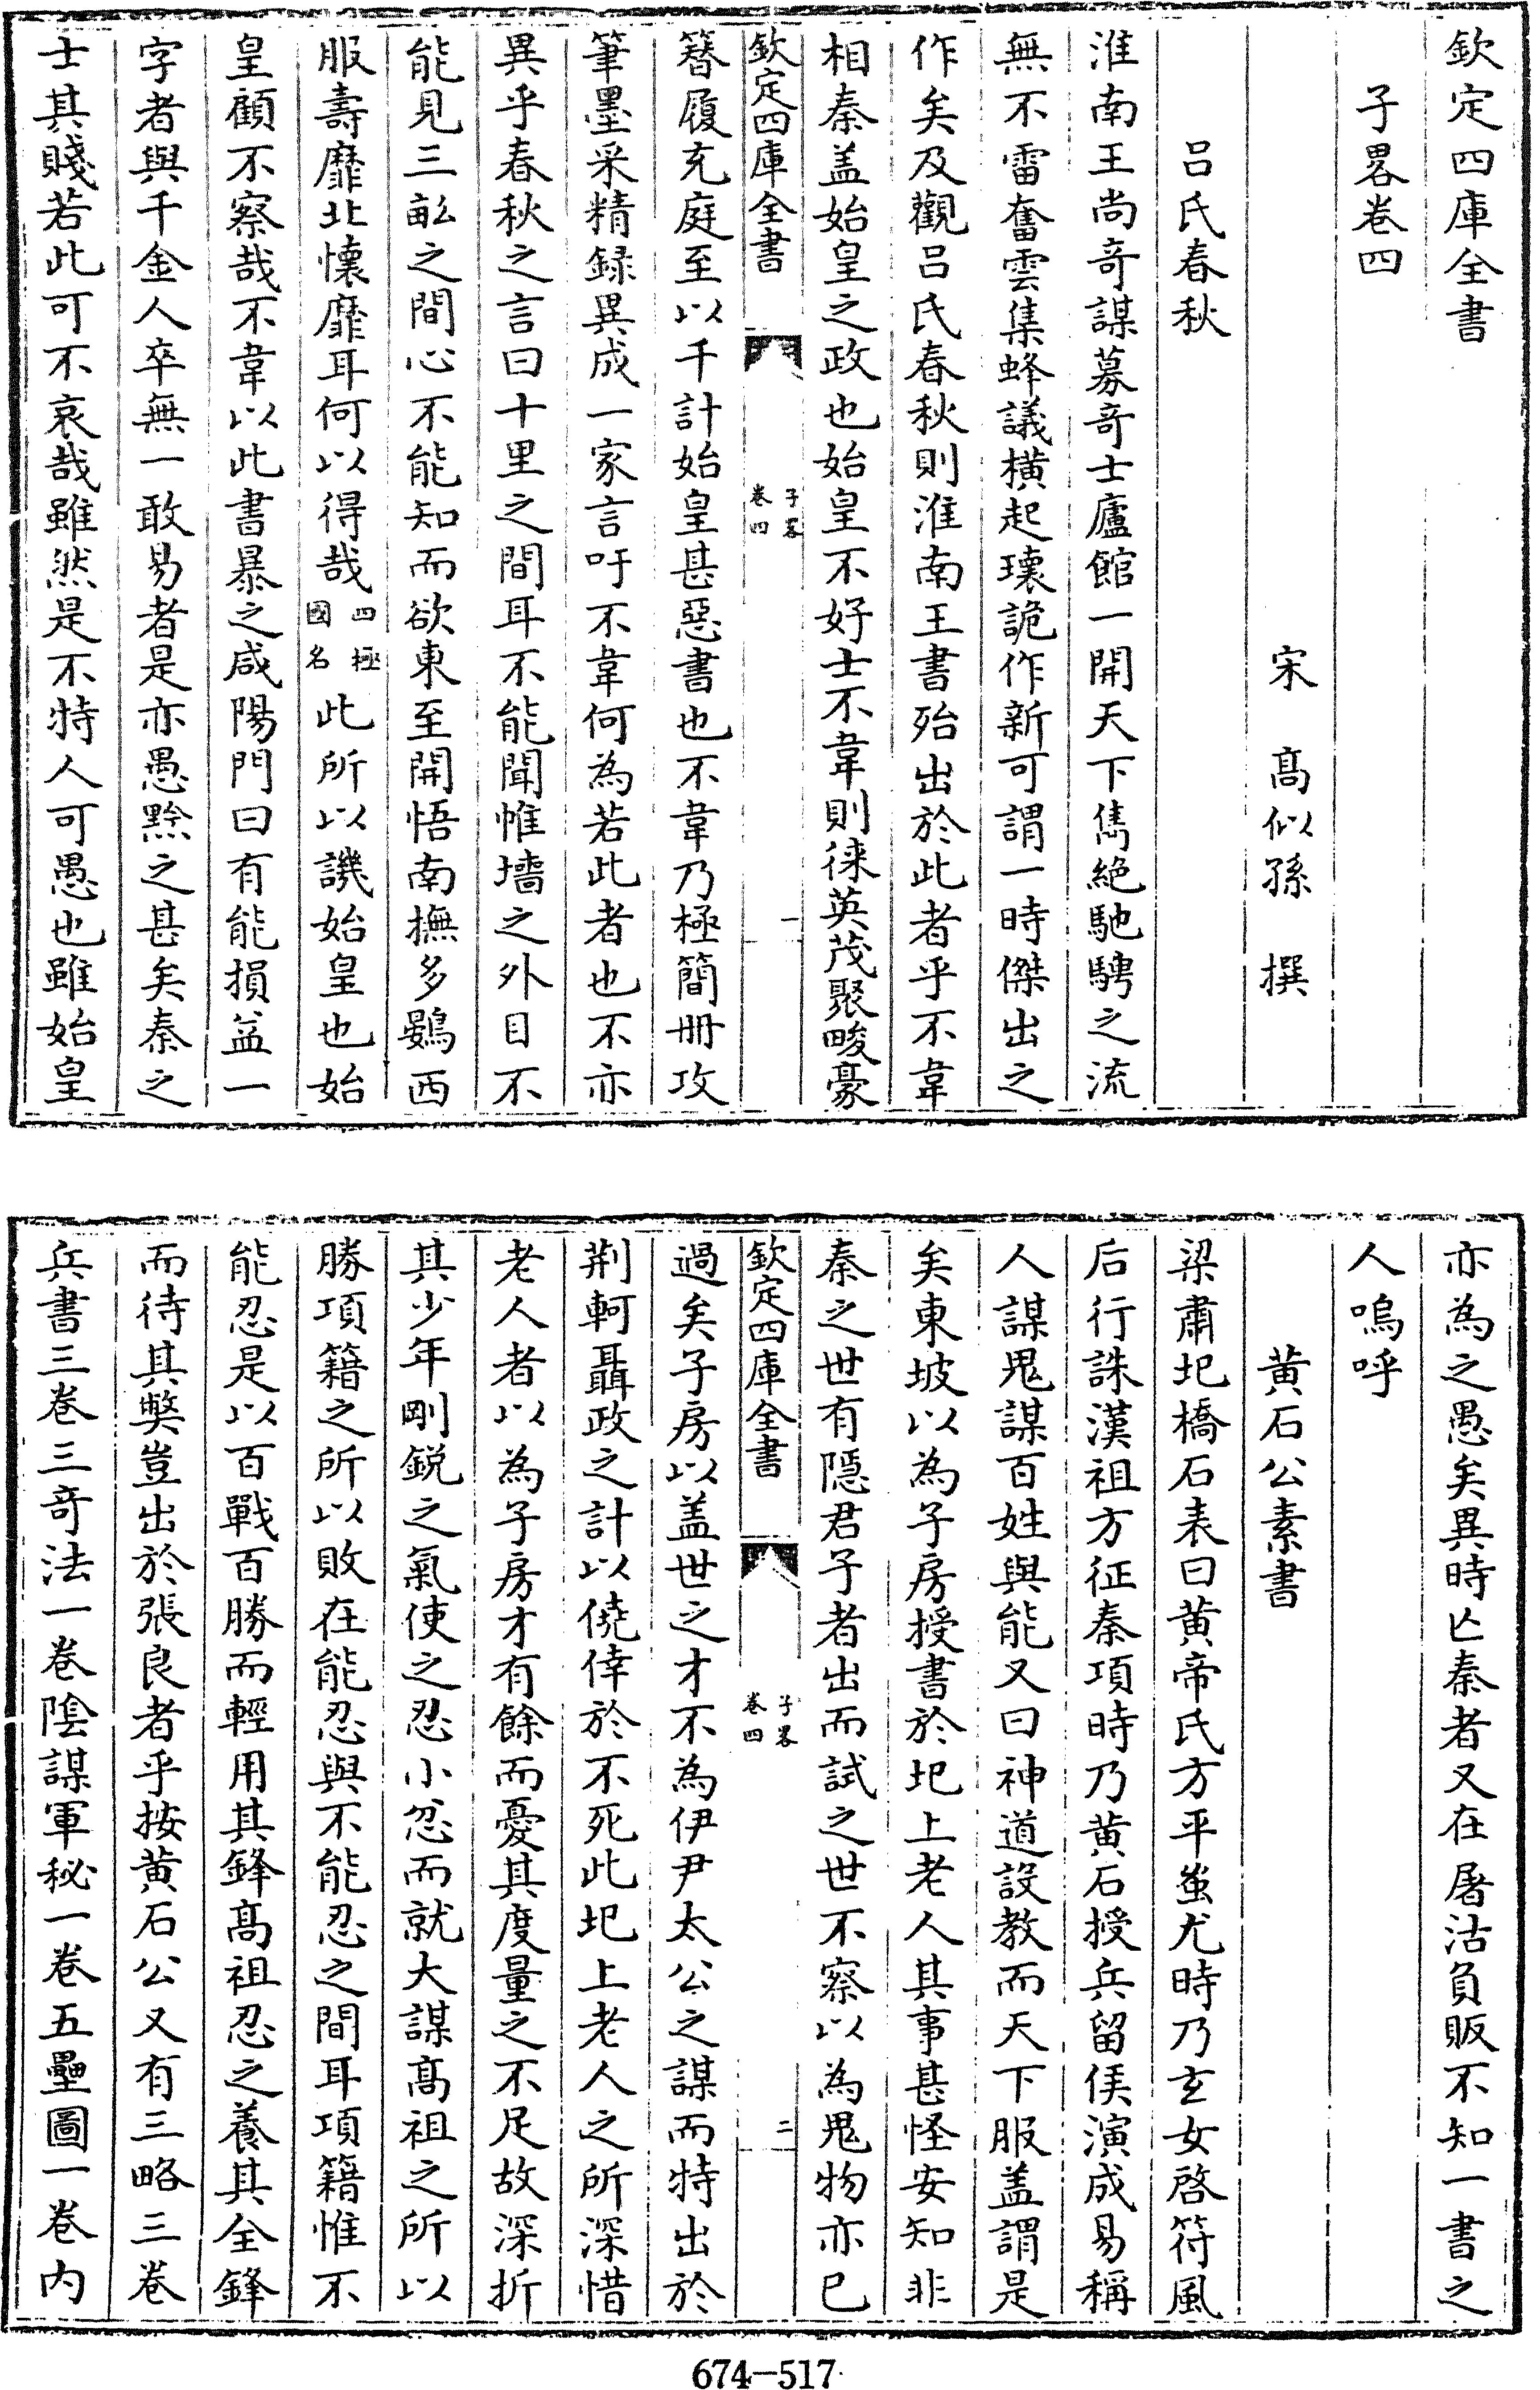 欽定四庫全書
子畧卷四
宋　髙似孫　撰
呂氏春秋
淮南王尚竒謀募竒士廬館一開天下雋絶馳騁之流
無不雷奮雲集蜂議橫起瓌詭作新可謂一時傑出之
作矣及觀呂氏春秋則淮南王書殆出於此者乎不韋
相秦盖始皇之政也始皇不好士不韋則徠英茂聚畯豪
欽定四庫全書
子畧
卷四
一
簪履充庭至以千計始皇甚惡書也不韋乃極簡冊攻
筆墨采精録異成一家言吁不韋何為若此者也不亦
異乎春秋之言曰十里之間耳不能聞帷墻之外目不
能見三畝之間心不能知而欲東至開悟南撫多鷃西
服壽靡北懷靡耳何以得哉四極國名此所以譏始皇也始
皇顧不察哉不韋以此書暴之咸陽門曰有能損益一
字者與千金人卒無一敢易者是亦愚黔之甚矣秦之
士其賤若此可不哀哉雖然是不特人可愚也雖始皇
亦為之愚矣異時亾秦者又在屠沽負販不知一書之
人嗚呼
黄石公素書
梁肅圯橋石表曰黄帝氏方平蚩尤時乃玄女啓符風
后行誅漢祖方征秦項時乃黄石授兵留侯演成易稱
人謀鬼謀百姓與能又曰神道設教而天下服盖謂是
矣東坡以為子房授書於圯上老人其事甚怪安知非
秦之世有隠君子者出而試之世不察以為鬼物亦已
欽定四庫全書
子畧
卷四
二
過矣子房以盖世之才不為伊尹太公之謀而特出於
荆軻聶政之計以僥倖於不死此圯上老人之所深惜
老人者以為子房才有餘而憂其度量之不足故深折
其少年剛銳之氣使之忍小忿而就大謀髙祖之所以
勝項籍之所以敗在能忍與不能忍之間耳項籍惟不
能忍是以百戰百勝而輕用其鋒髙祖忍之養其全鋒
而待其弊豈出於張良者乎按黄石公又有三略三卷
兵書三卷三竒法一卷隂謀軍秘一卷五壘圖一卷内
674-517